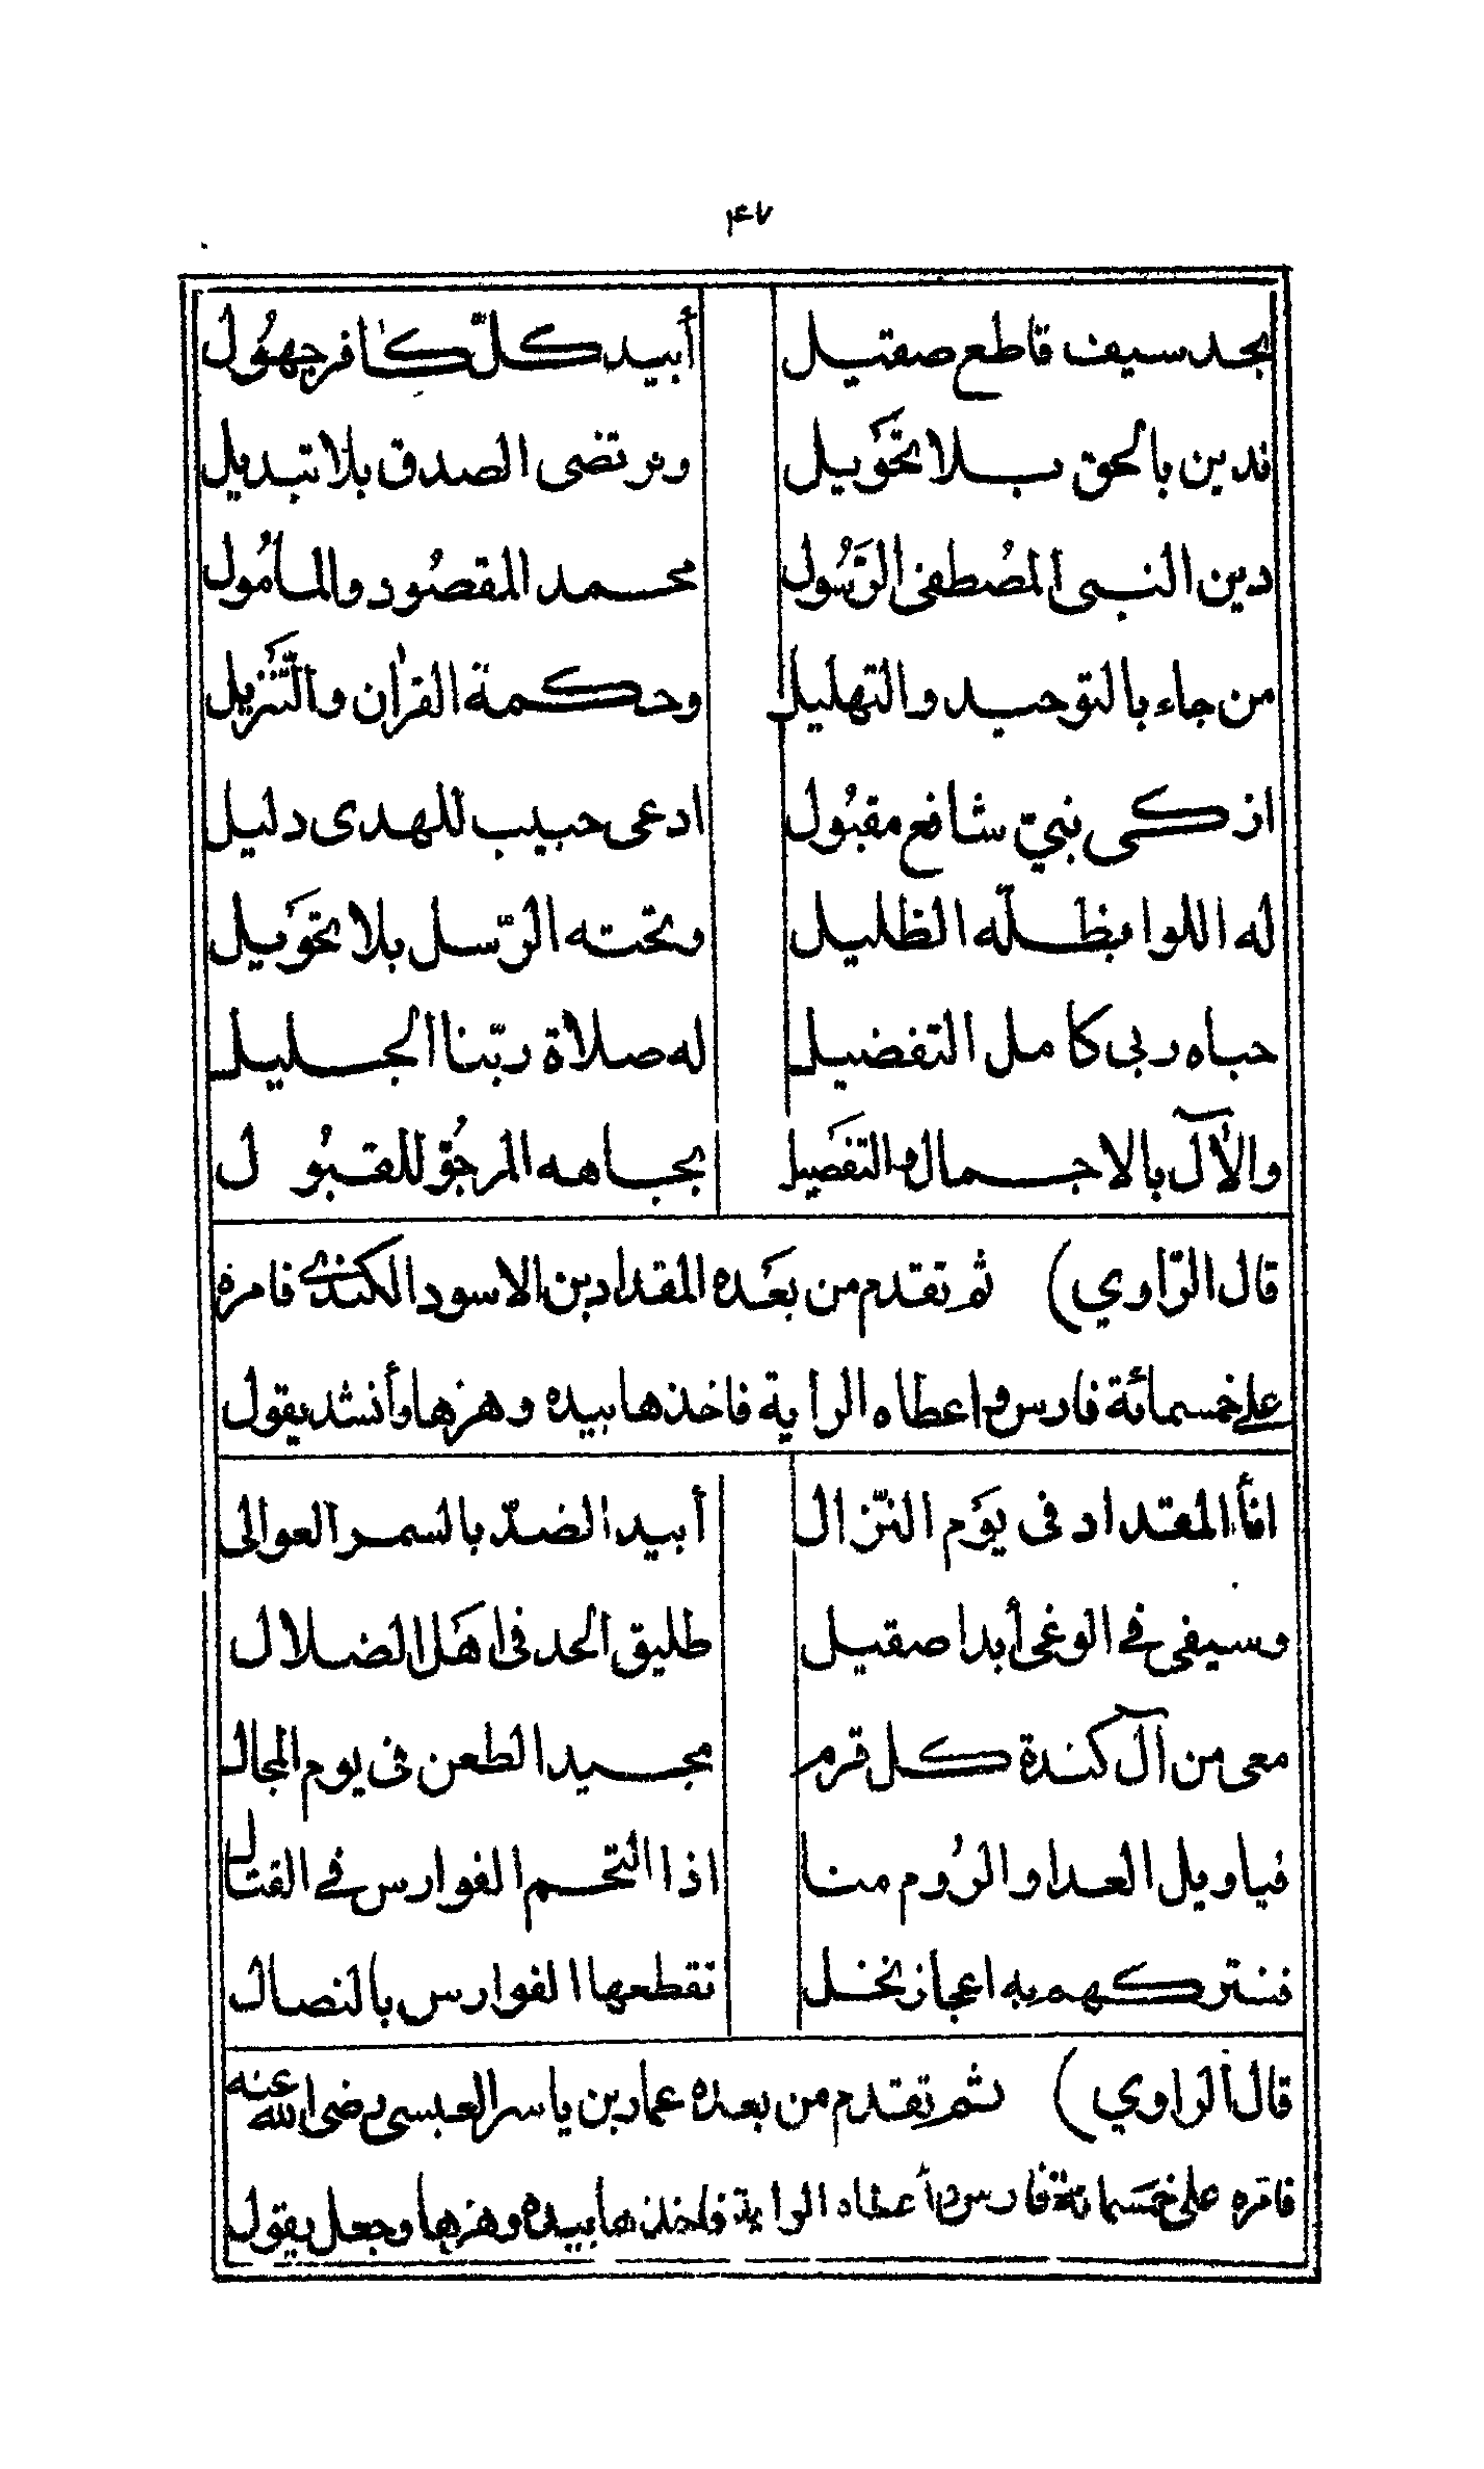 ۴۷
بحد سيف قاطع صقيل أبيد كلّ كافر جهُول
ندين بالحق بلا تحَويل ونرتضى الصدق بلا تبديل
دين النبى المصُطفى الرَّسُول محمد المقصُود والمامُول
من جاء بالتوحيد والتهليل وحكمة القرأن والتَّنزيل
ازكى نبيّ شافع مقبُول ادعى حبيب للهدى دليل
له اللوا بظلّه الظليل وتحته الرّسل بلا تحَويل
حباه ربى كامل التفضيل له صلاة ربّنا الجليل
والآل بالاجمال والتفَصيل بجاهه المرجُوّ للقبُول
قال الرّاوي) ثم تقدم من بعَده المقداد بن الاسود الكندى فامره
على خمسمائة فارس واعطاه الراية فاخذها بيده وهزها وأنشد يقول
انأ المقداد فى يوَم النّزال أبيد الضدّ بالسمر العوالى
وسيفى فى الوغى أبدا صقيل طليق الحد فى اهَل الضلال
معى من آل كندة كل قرم مجيد الطعن فى يوم المجال
فيا ويل العدا والرُوم منا اذا التحم الفوارس فى القتال
فنتركهم به اعجاز نخل تقطعها الفوارس بالنصال
قال الراوي) ثم تقدم من بعده عمار بن ياسر العبسى رضى الله عنه
فامّره على خمَسمائة فارس وأعطاه الراية فاخذها بيده وهزها وجعل يقول